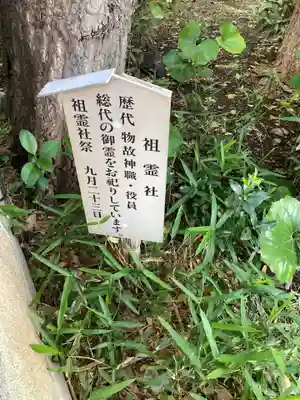 祖霊社
歴代 物故神職・役員
総代の御霊をお祀りしています。
祖霊社祭 九月二十三日